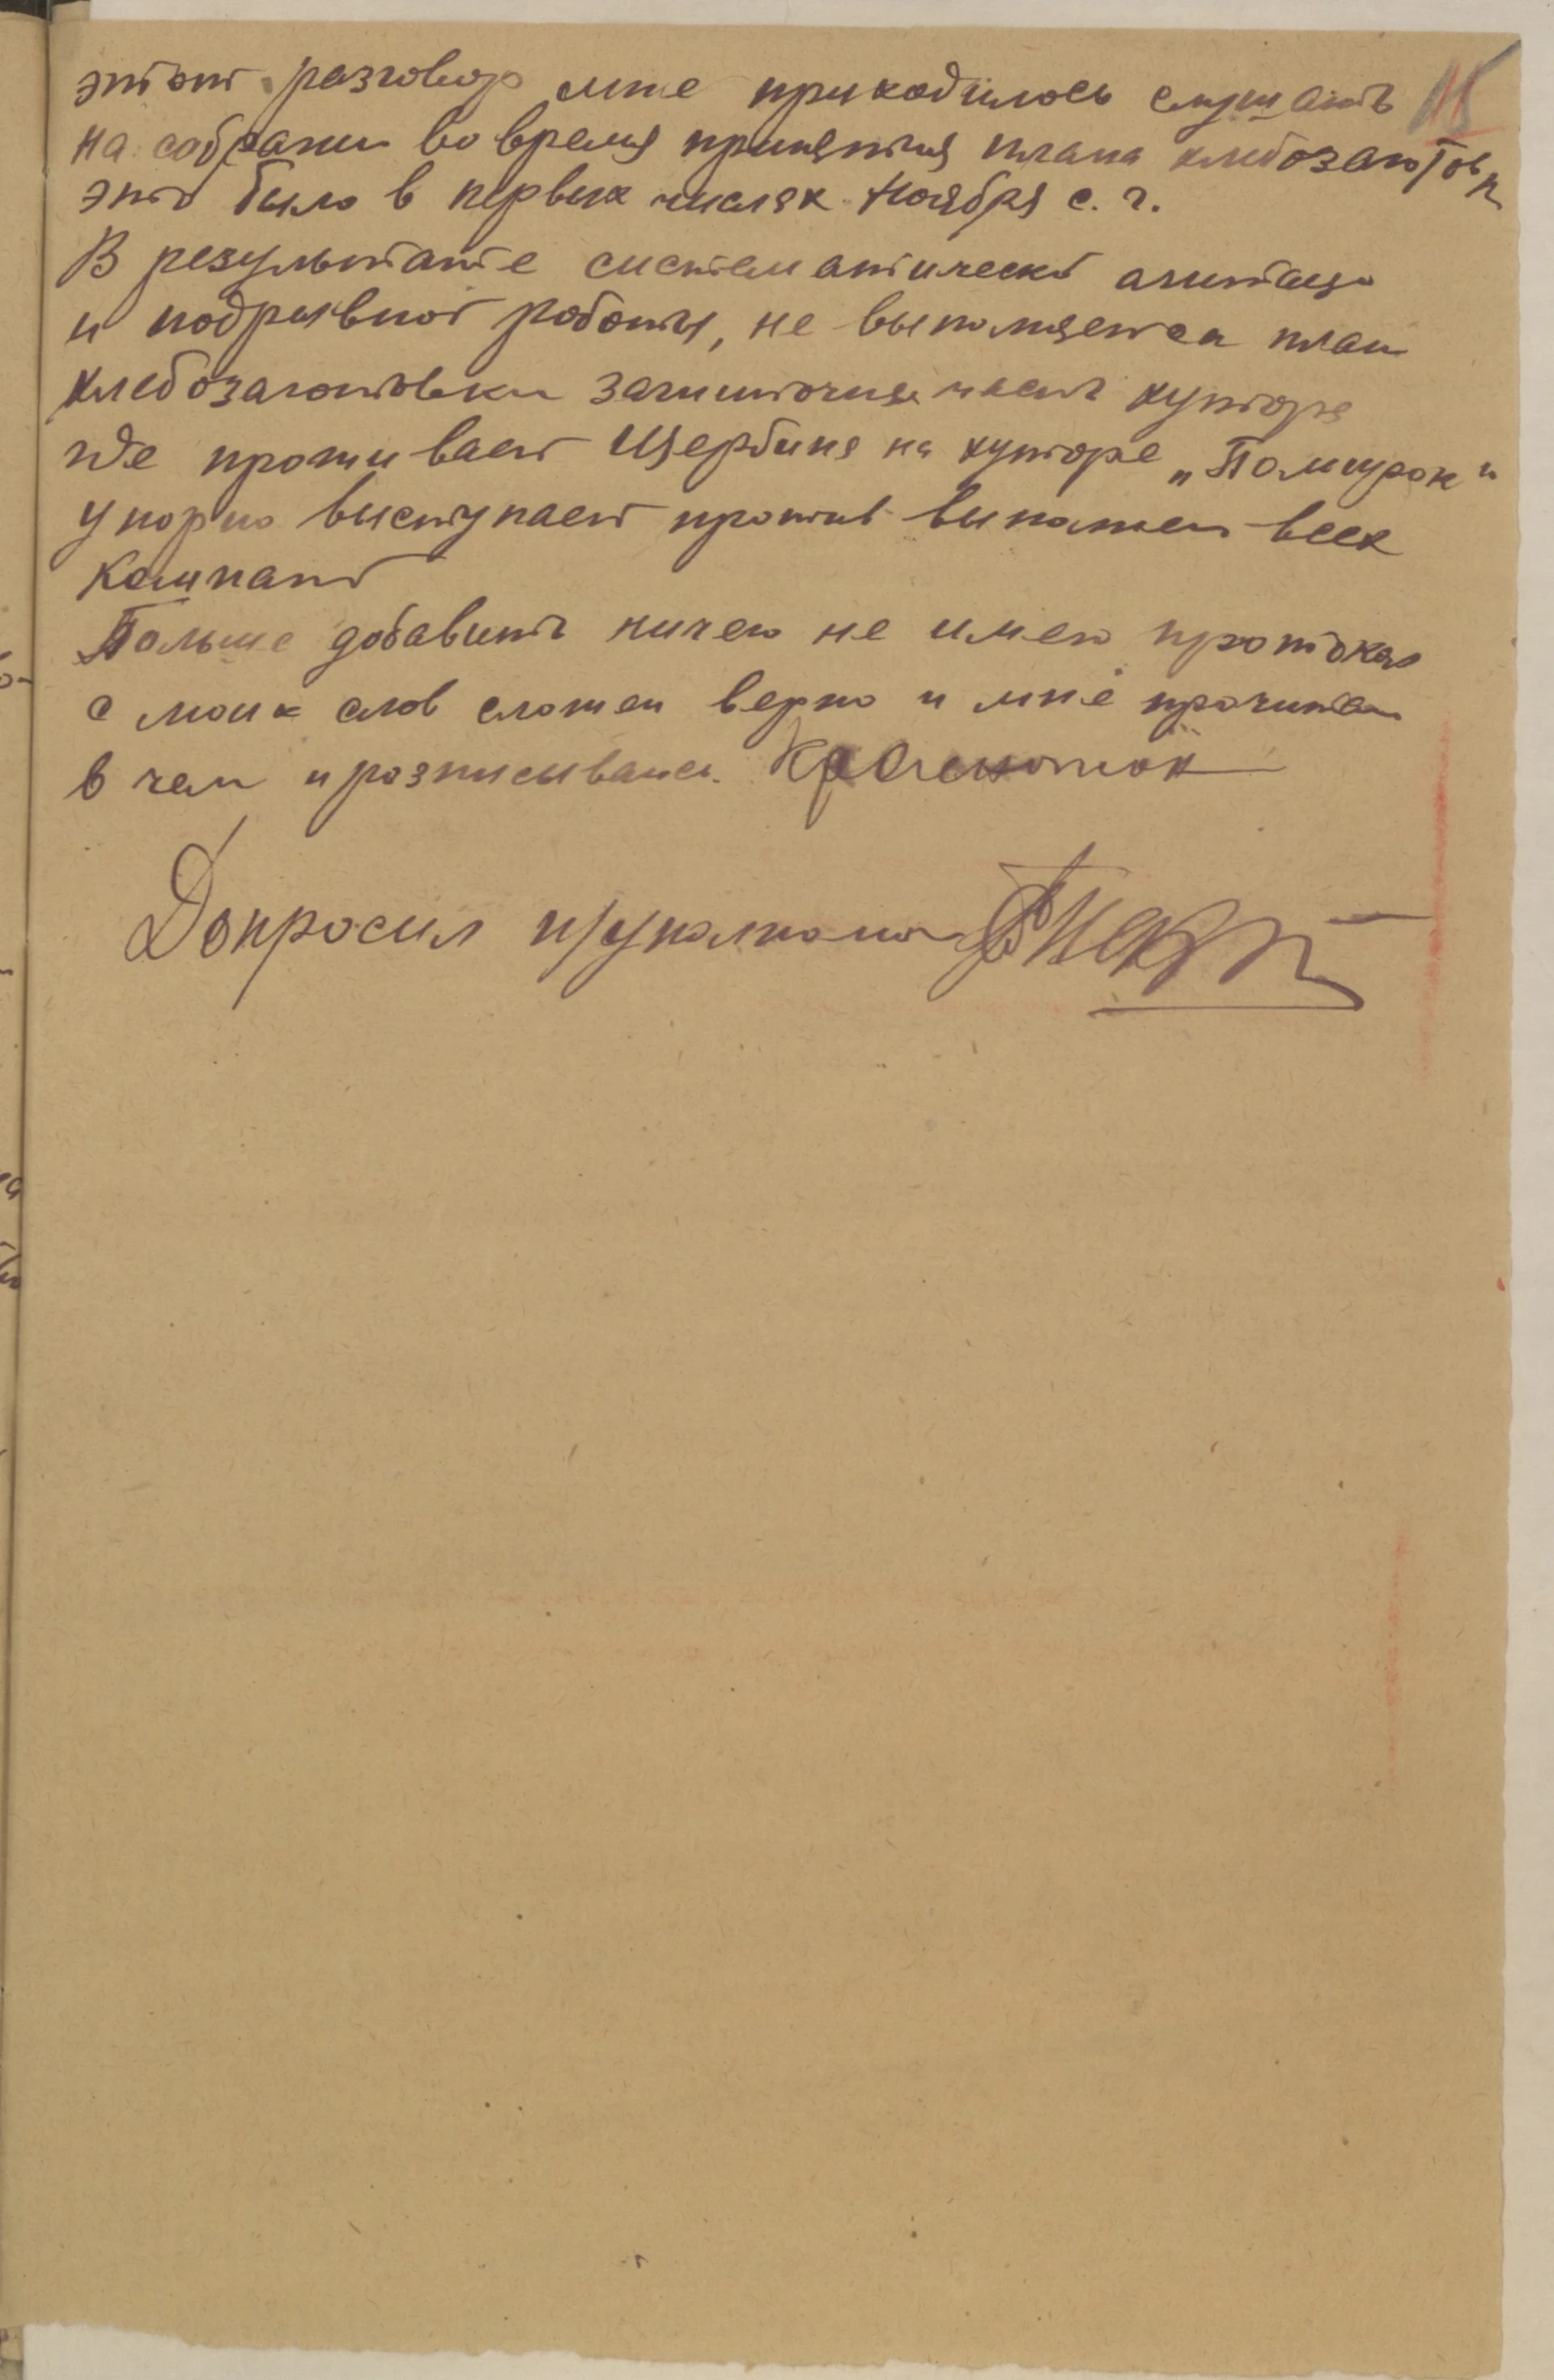 этот разговор мне приходилось слушать 115
на собрани во время принятия плана хлебозаготовк
это было в первых числах Ноября с. г.
В результате систематической агитаци
и подрывной роботы, не выполняется план
хлебозаготовки зажиточная часть хутора
где проживает Щербина на хуторе „
упорно выступает против выполнен всех
Кампаний
Больше добавить ничего не имею протокол
с моих слов сложен верно и мне прочитан
в чем и розписываюсь.
Допросил